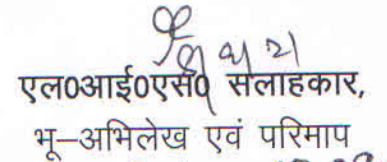 एल0आई0एस0 सलाहकार,
भू–अभिलेख एवं परिमाप